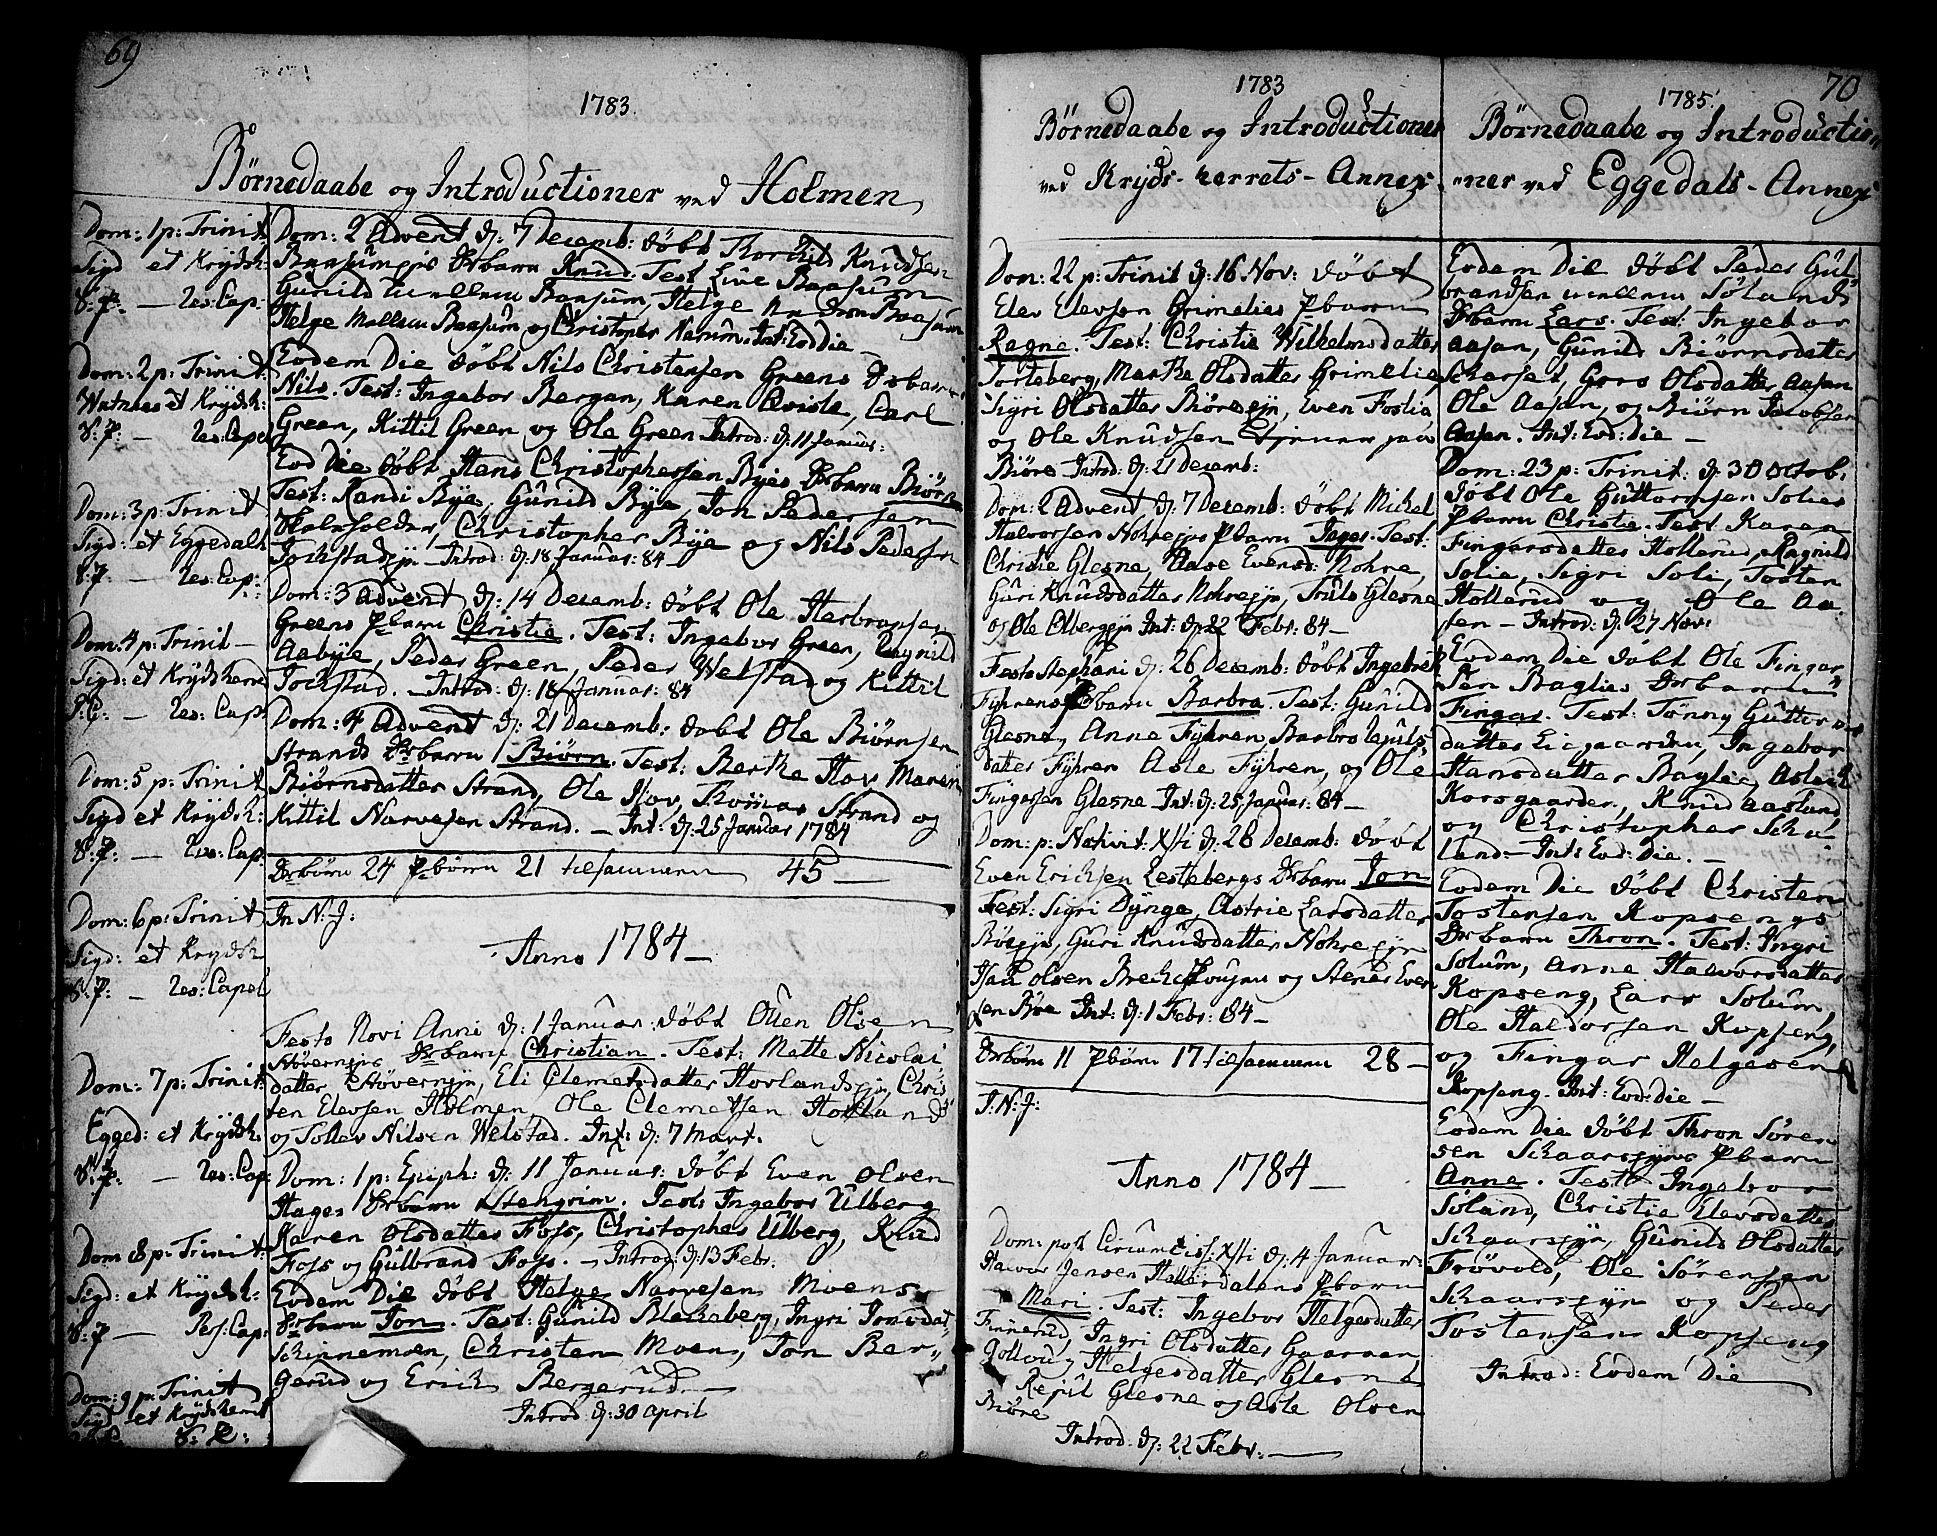 69
1783.
Børnedaabe og Introductioner ved Holmen
Dom: 1 p: Trinit:
Sigd et Krydsh:
S: P. — Res: Cap:
Dom: 2 p: Trinit:
et Krydsh:
S: P: — Res: Capel
Dom: 3 p: Trinit
Sigd: et Eggedahl
S: P: — Res: Cap:
Dom: 4 p: Trinit —
Sigd: et Krydsherre
— Res: Cap:
Dom: 5 p: Trinit
Sigd et Krydsh:
S: P: — Res: Cap:
Dom: 6 p: Trinit
Sigd: et Krydsh
S: P: — Res: Capel
Dom: 7 p: Trinit:
Egged: et Krydsh.
S: P: — Res: Cap:
Dom 8 p: Trinit:
Sigd: et Krydsh:
S: P — Res: Cap:
Dom: 9 p: Trinit
Sigd et Krydsherret
S: P:
Dom: 2 Advent d: 7 Decemb: døbt Thorkild Knudsen
Baasumejes Drbarn Knud. Test Live Baasum
Gunild mellem Baasum, Helge Baasum
Helge Mellem Baasum og Christopher Narum. Int: Eod die
Eodem Die døbt Nils Christensen Greens Drbarn
Nils. Test: Ingebor Bergan, Karen Carl
Green, Kittil Green og Ole Green Introd: d: 11 Januar:
Eod Die døbt Hans Christophersen Byes Drbarn Biørn
Test: Randi Bye, Gunild Bye, Jon Pedersen
Skalsholder, Christopher Bye og Nils Pedersen
Tochstadejn — Introd: d: 18 Januar: 84 —
Dom: 3 Advent d: 14 Decemb: døbt Ole Herbransen
Greens Pbarn Christie. Test: Ingebor Green, Ragnild
Aabye, Peder Green, Peder Welstad og Kittil
Tochstad. — Introd: d: 18 Januar: 84
Dom: 4 Advent d: 21 Decemb: døbt Ole Biørnsen
Strands Drbarn Biørn. Test: Berthe Hov Maren
Biørnsdatter Strand, Ole Hov, Thomas Strand og
Kittil Narvesen Strand. — Int: d: 25 Januar 1784
Drbørn 24 Pbørn 21 tilsammen 45 —
In N: J:
Anno 1784 —
Festo Novi Anni d: 1 Januar: døbt Ouen Olsen
Støvernejes Drbarn Christian. Test: Mette Nicolai
datter Støvernejn, Eli Clemetsdatter Hovlandsejn Chris
ten Elevsen Holmen, Ole Clemetsen Hovland
og Sollev Nilsen Welstad. Int: d: 7 Mart.
Dom: 1 p: Epiph: d: 11 Januar: døbt Even Olsen
Hages Drbarn Stengrim. Test: Ingebor Ulberg
Karen Olsdatter Foss, Christopher Ulberg, Knud
Foss og Gulbrand Foss. — Introd: d: 13 Febr:
Eodem Die døbt Helge Narvesen Moens
Drbarn Jon. Test: Gunild Bleckeberg, Ingri Jonsdat
Schinnemoen, Christen Moen, Jon Ber-
gerud og Erich Bergerud. —
Introd: d: 30 April
1783
Børnedaabe og Introductioner
ved Kryds-herrets-Annex
Dom: 22 p: Trinit d: 16 Nov: døbt
Elev Elevsen Grimelies Pbarn
Ragne. Test: Christie Wilhelmsdatter
Torteberg, Marthe Olsdatter Grimelie
Sigri Olsdatter Børeejn, Even Foslia
og Ole Knudsen
Biøre Introd: d: 21 Decemb:
Dom: 2 Advent d: 7 Decemb: døbt Michel
Halvorsen Nohreejes Pbarn Inger. Test:
Christie Glesne, Aase Evensd: Nohre,
Guri Knudsdatter Nohreejn, Truls Glesne
og Ole Olbergejn Int: d: 22 Febr: 84 —
Festo Stephani d: 26 Decemb: døbt Ingebret
Fyhrens Pbarn Barbra. Test: Gunild
Glesne, Anne Fyhren, Barbro
datter Fyhren Asle Fyhren, og Ole
Fingersen Glesne Int: d: 25 Januar: 84 —
Dom: p: Nativit: Xsti d: 28 Decemb: døbt
Even Ericksen Lestebergs Drbarn Jon
Test: Sigri Dynge, Astrie Larsdatter
Guri Knudsdatter Nohreejn
Olsen og Steners Even
sen Bøe Int: d: 1 Febr: 84 —
Drbørn 11 Pbørn 17 tilsammen 28 —
J: N: J:
Anno 1784 —
Dom: post Circumciss: Xsti d: 4 Januar:
Halvor Jensen Pbarn
Mari. Test: Ingebor Helgesdatter
Finnerud, Ingri Olsdatter Gaaraen
Helgesdatter Glesne
Glesne og Asle Olsen
Biøre
Introd: d: 22 Febr: —
1785.
70
Børnedaabe og Introductio-
-ner ved Eggedals-Annex
Eodem Die døbt Peder Gul-
brandsen mellem Sølands
Drbarn Lars. Test: Ingebor
Aasan, Gunild Biørnsdatter
Scharset, Goro Olsdatter Aasan
Ole Aasan, og Biørn Jacobsen
Aasan. Int: Eod: die —
Dom: 23 p: Trinit: d: 30 Octob.
døbt Ole Guttormsen Solies
Pbarn Christie. Test: Karen
Fingersdatter Hollerud, Ragnild
Solie, Sigri Soli, Tosten
Hollerud og Ole Aa-
sen — Introd: d: 27 Nov:
Eodem Die døbt Ole Fingar-
sen Baglies Drbarn
Fingar. Test: Tønny Guttorms
datter Eiegaarden, Ingebor
Hansdatter Baglie, Aslack
Korsgaarden, Knud Aasland
og Christopher Scha-
land — Int: Eod: Die. —
Eodem Die døbt Christen
Tostensen Kopsengs
Drbarn Thron. Test: Ingri
Solum, Anne Halvorsdatter
Kopseng, Lars Solum,
Ole Haldorsen Kopseng,
og Fingar Helgesen
Kopseng. Int: Eod: die —
Eodem Die døbt Thron Søren
sen Schaarsejns Pbarn
Anne. Test: Ingebor
Søland, Christie Elevsdatter
Schaarsejn, Gunild Olsdatter
Frøvold, Ole Sørensen
Schaarsejn og Peder
Tostensen Kopseng
Introd: Eodem Die